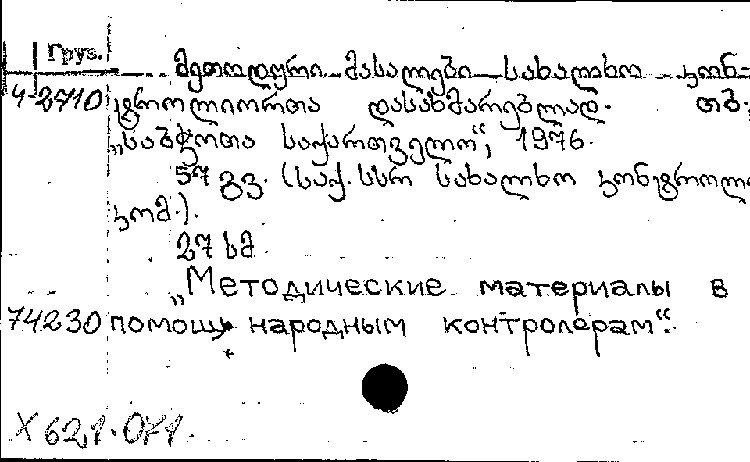 Груз.
მეთოდური მასალები სახალხო კონ-
4-2710 ტროლიორთა დასახმარებლად. თბ.,
„საბჭოთა საქართველო“, 1976.
57 გვ. (საქ. სსრ სახალხო კონტროლი
კომ.).
27 სმ
„Методические материалы в
74230 помощь народным контролерам“.
X 621.071.